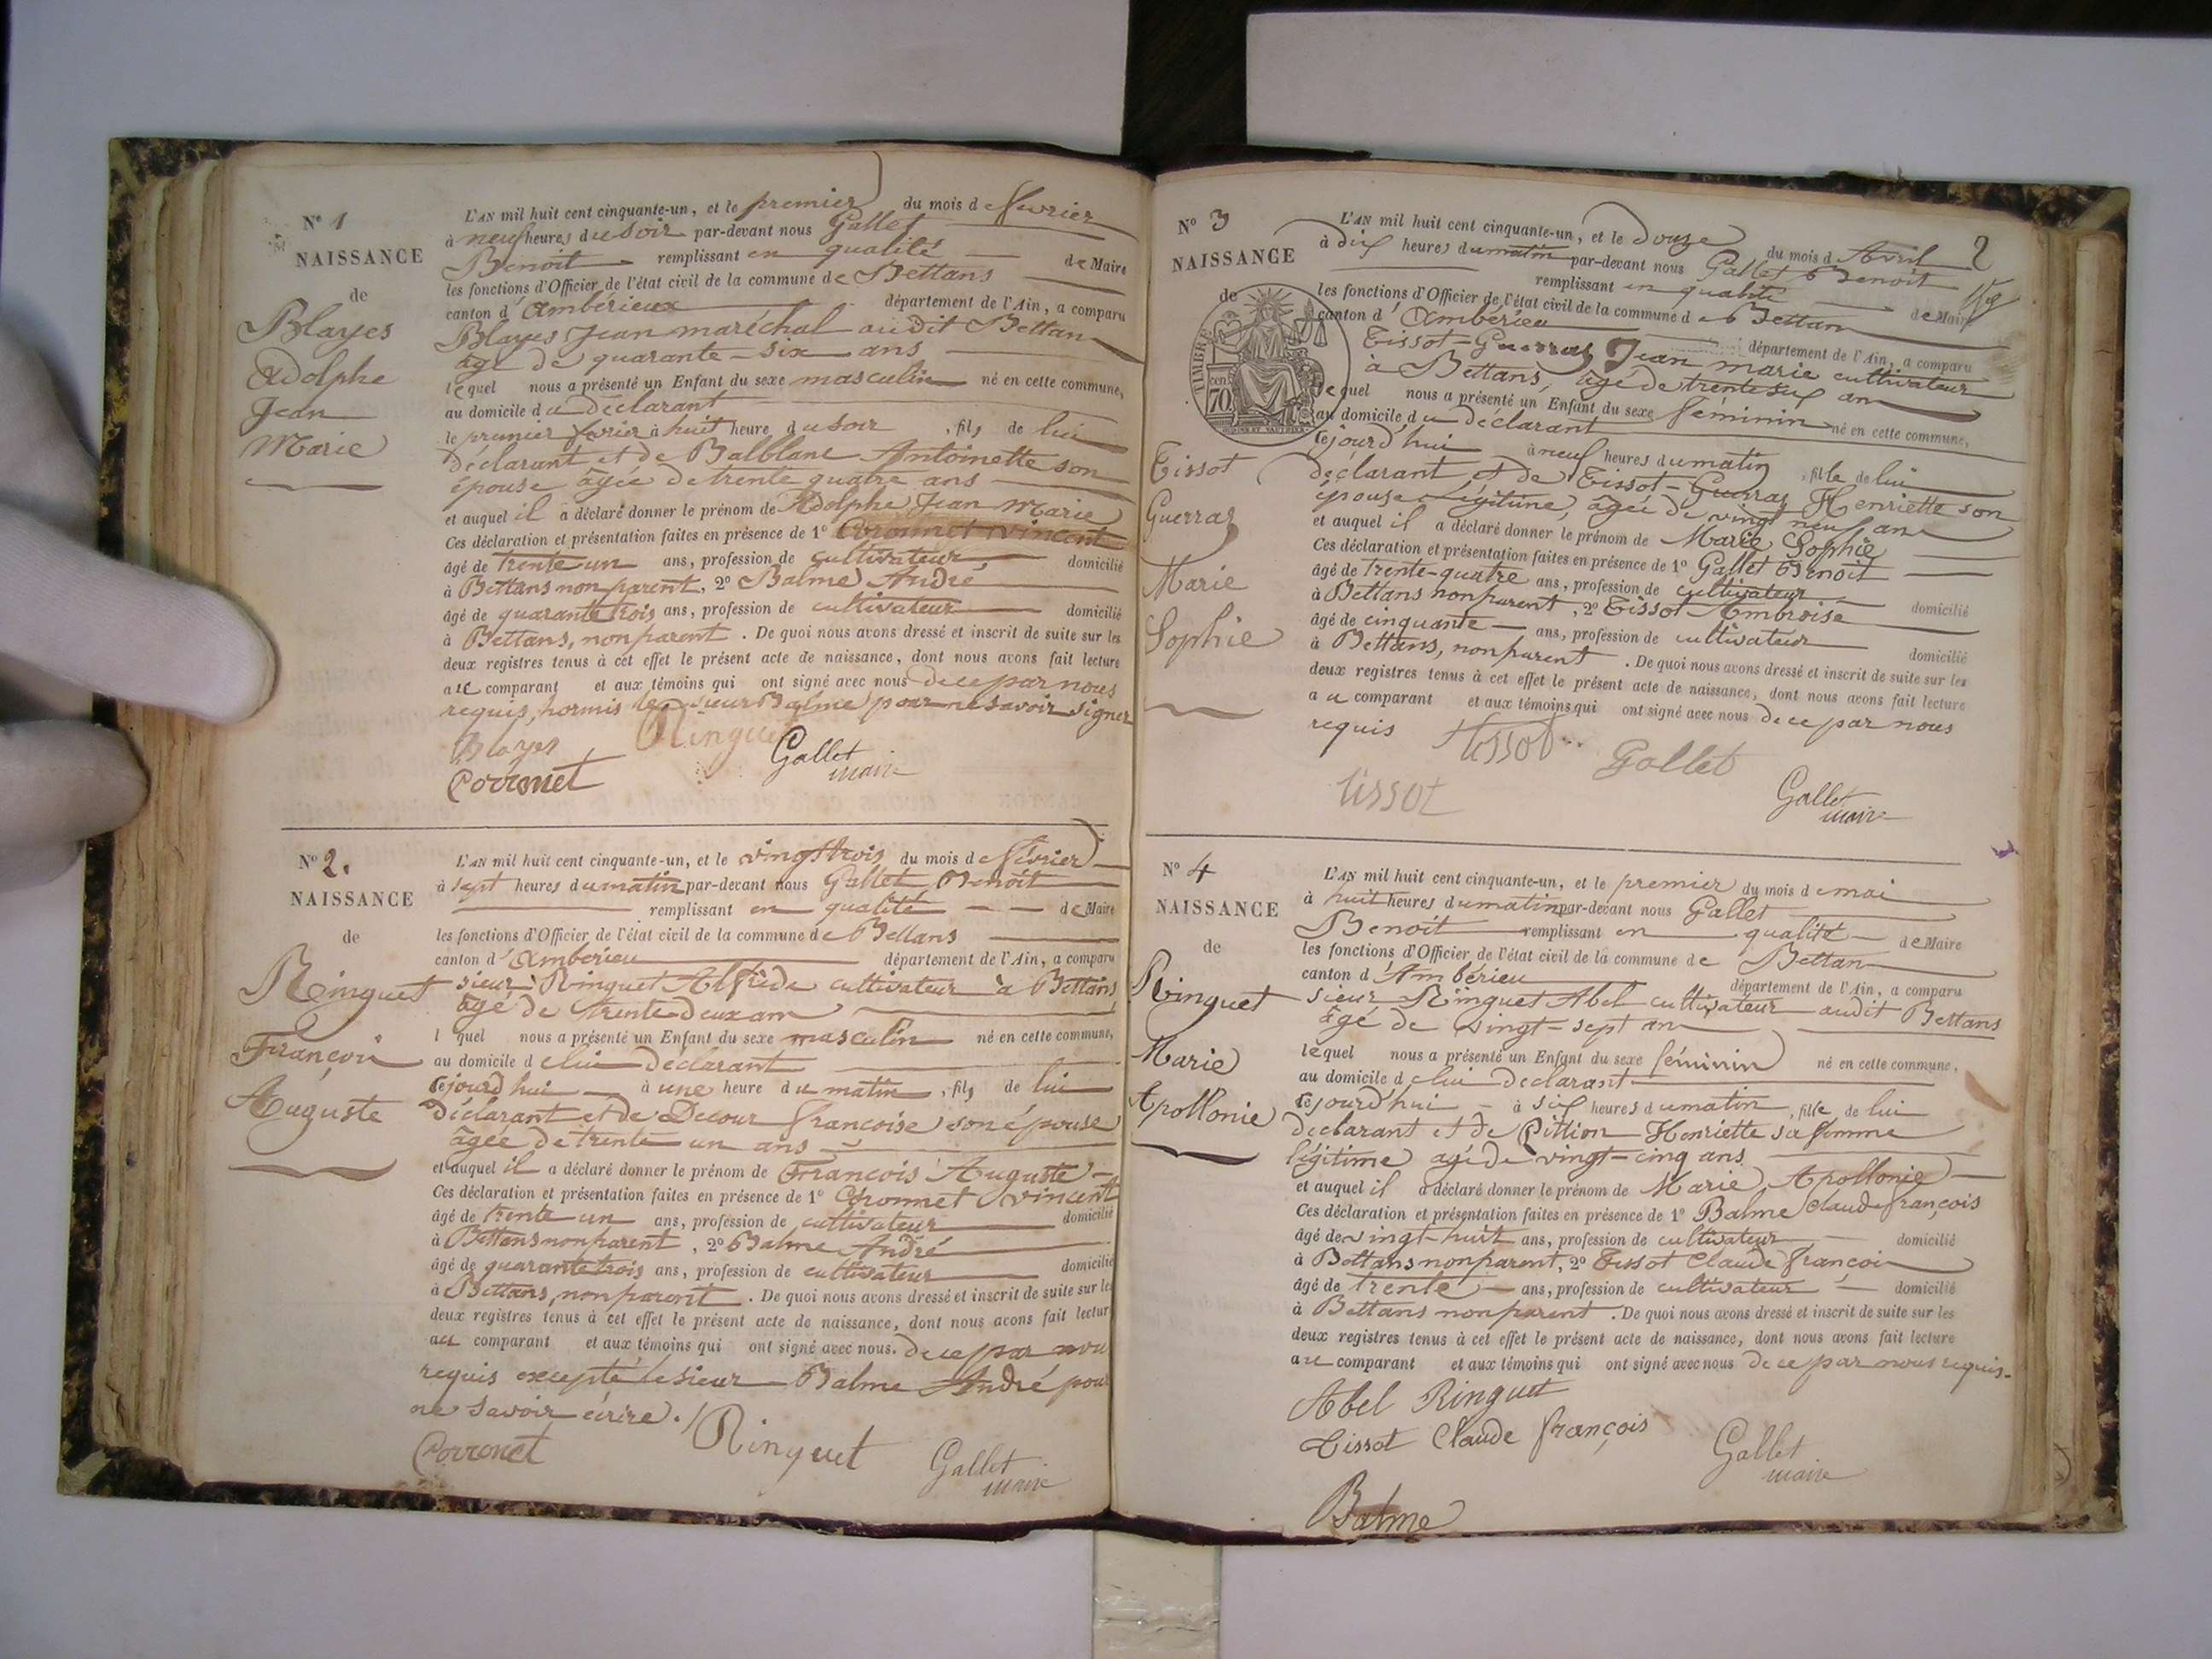 N° 1
NAISSANCE
de
Blayes
Adolphe
Jean
Marie
L'AN mil huit cent cinquante-un, et le premier du mois de février
à neuf heures du soir par-devant nous Gallet
Benoit remplissant en qualité de Maire
les fonctions d'Officier de l'état civil de la commune de Bettans
canton d'Ambérieux département de l'Ain, a comparu
Blayes Jean maréchal audit Bettan
âgé de quarante-six ans
lequel nous a présenté un Enfant du sexe masculin né en cette commune,
au domicile du déclarant
le premier février à huit heure du soir, fils de lui
déclarant et de Balblanc Antoinette son
épouse âgée de trente quatre ans
et auquel il a déclaré donner le prénom de Adolphe Jean Marie
Ces déclaration et présentation faites en présence de 1° Coronnet Vincent
âgé de trente un ans, profession de cultivateur domicilié
à Bettans non parent, 2° Balme André
âgé de quarante trois ans, profession de cultivateur domicilié
à Bettans, non parent. De quoi nous avons dressé et inscrit de suite sur les
deux registres tenus à cet effet le présent acte de naissance, dont nous avons fait lecture
au comparant et aux témoins qui ont signé avec nous de ce par nous
requis, hormis le sieur Balme pour ne savoir signer
Blayes Ringuet Gallet
maire
Corronet
N° 2.
NAISSANCE
de
Ringuet
François
Auguste
L'AN mil huit cent cinquante-un, et le vingt trois du mois de février
à sept heures du matin par-devant nous Gallet Benoît
remplissant en qualité de Maire
les fonctions d'Officier de l'état civil de la commune de Bettans
canton d'Ambérieu département de l'Ain, a comparu
sieur Ringuet Alfrède cultivateur à Bettans
âgé de trente-deux an
l quel nous a présenté un Enfant du sexe masculin né en cette commune,
au domicile de lui déclarant
cejourd'hui à une heure du matin, fils de lui
déclarant et de Decour françoise son épouse
âgée de trente un ans
et auquel il a déclaré donner le prénom de François Auguste
Ces déclaration et présentation faites en présence de 1° Coronnet Vincent
âgé de trente un ans, profession de cultivateur domicilié
à Bettans non parent, 2° Balme André
âgé de quarante trois ans, profession de cultivateur domicilié
à Bettans, non parent. De quoi nous avons dressé et inscrit de suite sur les
deux registres tenus à cet effet le présent acte de naissance, dont nous avons fait lectur
au comparant et aux témoins qui ont signé avec nous. de ce par nou
requis excepté le sieur Balme André pour
ne savoir écrire.
Corronet Ringuet Gallet
maire
2
N° 3
NAISSANCE
de
TIMBRE
70 cent
Tissot
Guerraz
Marie
Sophie
L'AN mil huit cent cinquante-un, et le Douze du mois d Avril
à dix heures du matin par-devant nous Gallet Benoit
remplissant en qualité de Maire
les fonctions d'Officier de l'état civil de la commune de Bettan
canton d'Ambérieu département de l'Ain, a comparu
Tissot-Guerraz Jean marie cultivateur
à Bettans, âgé de trente six an
lequel nous a présenté un Enfant du sexe féminin né en cette commune,
au domicile du déclarant
cejourd'hui à neuf heures du matin, fille de lui
déclarant et de Tissot-Guerraz Henriette son
épouse légitime, âgée de vingt neuf an
et auquel il a déclaré donner le prénom de Marie Sophie
Ces déclaration et présentation faites en présence de 1° Gallet Benoit
âgé de trente-quatre ans, profession de cultivateur domicilié
à Bettans non parent, 2° Tissot Ambroise
âgé de cinquante ans, profession de cultivateur domicilié
à Bettans, non parent. De quoi nous avons dressé et inscrit de suite sur les
deux registres tenus à cet effet le présent acte de naissance, dont nous avons fait lecture
au comparant et aux témoins qui ont signé avec nous de ce par nous
requis Tissot Gallet
tissot Gallet
maire
N° 4
NAISSANCE
de
Ringuet
Marie
Apollonie
L'AN mil huit cent cinquante-un, et le premier du mois de mai
à huit heures du matin par-devant nous Gallet
Benoit remplissant en qualité de Maire
les fonctions d'Officier de l'état civil de la commune de Bettan
canton d'Ambérieu département de l'Ain, a comparu
sieur Ringuet Abel cultivateur audit Bettans
âgé de vingt-sept an
lequel nous a présenté un Enfant du sexe féminin né en cette commune,
au domicile de lui déclarant
cejourd'hui à six heures du matin, fille de lui
déclarant et de Pittion Henriette sa femme
légitime agée de vingt-cinq ans
et auquel il a déclaré donner le prénom de Marie Apollonie
Ces déclaration et présentation faites en présence de 1° Balme Claude françois
âgé de vingt-huit ans, profession de cultivateur domicilié
à Bettans non parent, 2° Tissot Claude françoi
âgé de trente ans, profession de cultivateur domicilié
à Bettans non parent. De quoi nous avons dressé et inscrit de suite sur les
deux registres tenus à cet effet le présent acte de naissance, dont nous avons fait lecture
au comparant et aux témoins qui ont signé avec nous de ce par nous requis
Abel Ringuet
Tissot Claude françois Gallet
maire
Balme